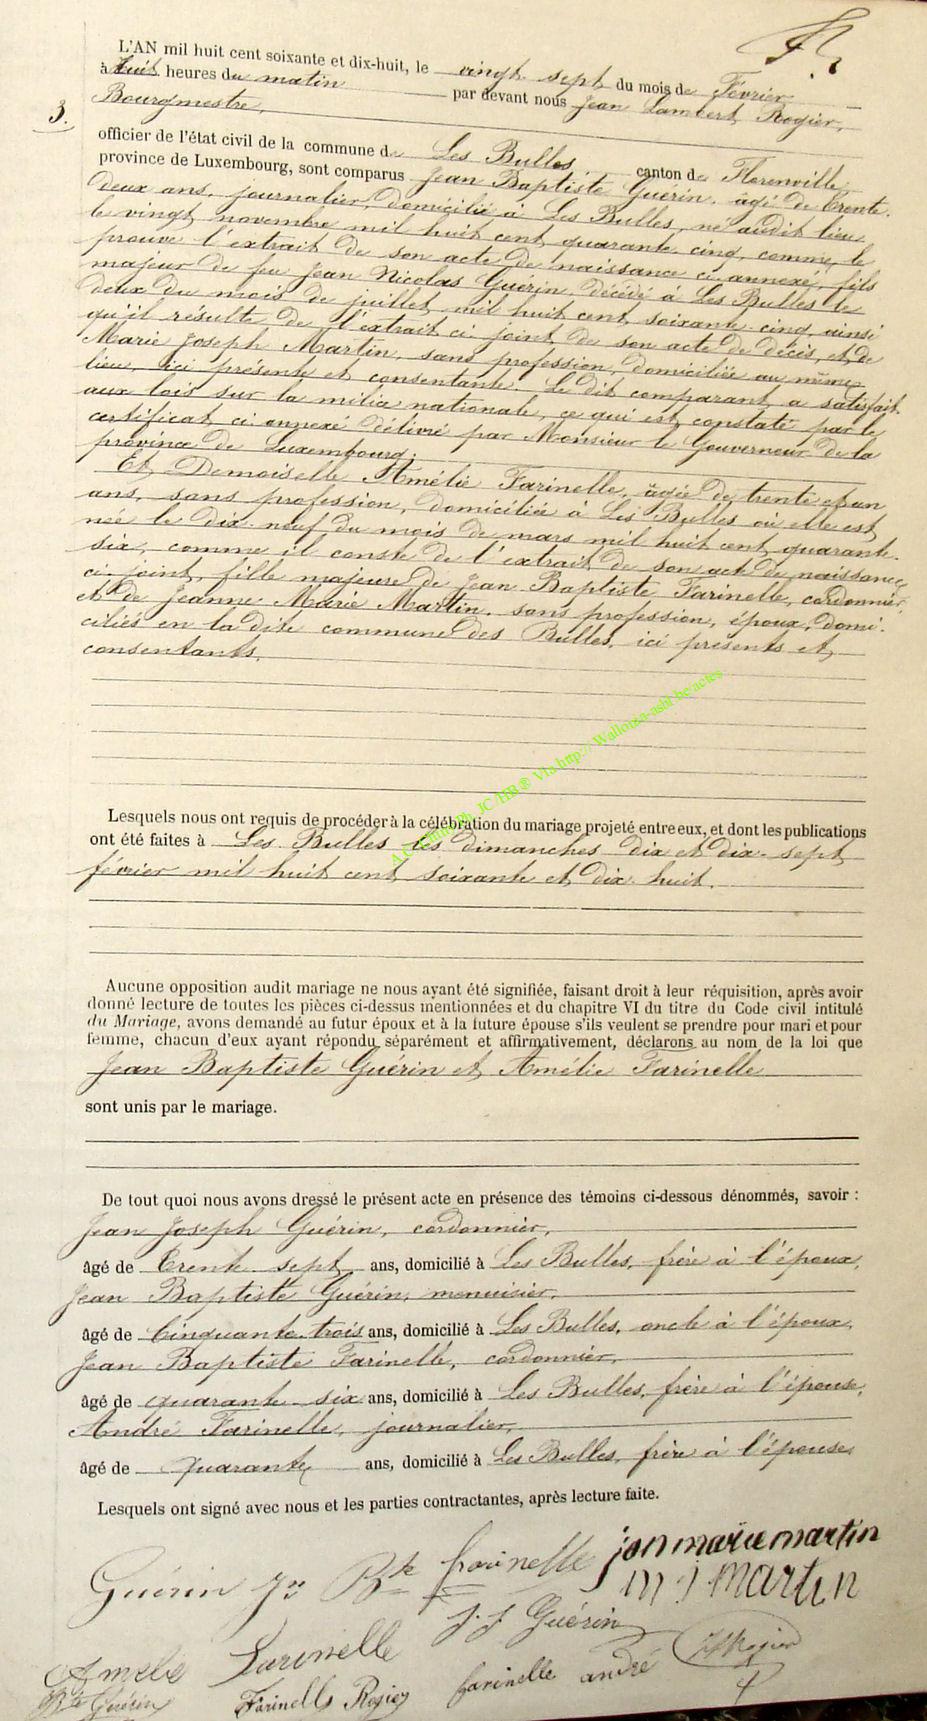 3.
L'AN mil huit cent soixante et dix-huit, le vingt sept du mois de Février
à huit heures du matin par devant nous Jean Lambert Rogier,
Bourgmestre,
officier de l'état civil de la commune de Les Bulles canton de Florenville,
province de Luxembourg, sont comparus Jean Baptiste Guérin, âgé de trente-
deux ans, journalier, domicilié à Les Bulles, né audit lieu
le vingt novembre mil huit cent quarante cinq, comme le
prouve l'extrait de son acte de naissance ci-annexé, fils
majeur de feu Jean Nicolas Guérin, décédé à Les Bulles le
deux du mois de juillet mil huit cent soixante-cinq, ainsi
qu'il résulte de l'extrait ci-joint de son acte de décès, et de
Marie Joseph Martin, sans profession, domiciliée au même
lieu, ici présente et consentante. Le dit comparant a satisfait
aux lois sur la milice nationale, ce qui est constaté par le
certificat ci-annexé délivré par Monsieur le Gouverneur de la
province de Luxembourg.
Et Demoiselle Amélie Farinelle, âgée de trente et un
ans, sans profession, domiciliée à Les Bulles où elle est
née le dix-neuf du mois de mars mil huit cent quarante-
six, comme il conste de l'extrait de son acte de naissance
ci-joint, fille majeure de Jean Baptiste Farinelle, cordonnier,
et de Jeanne Marie Martin, sans profession, époux, domi-
ciliés en la dite commune des Bulles, ici présents et
consentants.
Via http://Wallonia-asbl.be/actes
Lesquels nous ont requis de procéder à la célébration du mariage projeté entre eux, et dont les publications
ont été faites à Les Bulles les dimanches dix et dix-sept
février mil huit cent soixante et dix-huit.
Aucune opposition audit mariage ne nous ayant été signifiée, faisant droit à leur réquisition, après avoir
donné lecture de toutes les pièces ci-dessus mentionnées et du chapitre VI du titre du Code civil intitulé
du Mariage, avons demandé au futur époux et à la future épouse s'ils veulent se prendre pour mari et pour
femme, chacun d'eux ayant répondu séparément et affirmativement, déclarons au nom de la loi que
Jean Baptiste Guérin et Amélie Farinelle
sont unis par le mariage.
De tout quoi nous avons dressé le présent acte en présence des témoins ci-dessous dénommés, savoir :
Jean Joseph Guérin, cordonnier,
âgé de trente-sept ans, domicilié à Les Bulles, frère à l'époux,
Jean Baptiste Guérin, menuisier,
âgé de Cinquante-trois ans, domicilié à Les Bulles, oncle à l'époux,
Jean Baptiste Farinelle, cordonnier,
âgé de quarante-six ans, domicilié à Les Bulles, frère à l'épouse,
André Farinelle, journalier,
âgé de quarante ans, domicilié à Les Bulles, frère à l'épouse
Lesquels ont signé avec nous et les parties contractantes, après lecture faite.
Guérin Jn Bte farinelle jon marie martin
m j martin
J. J. Guérin
Amélie Farinelle farinelle andré JLRogier
Bte Guérin Farinelle